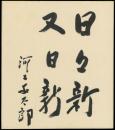 日々新
又日新
河上丈太郎